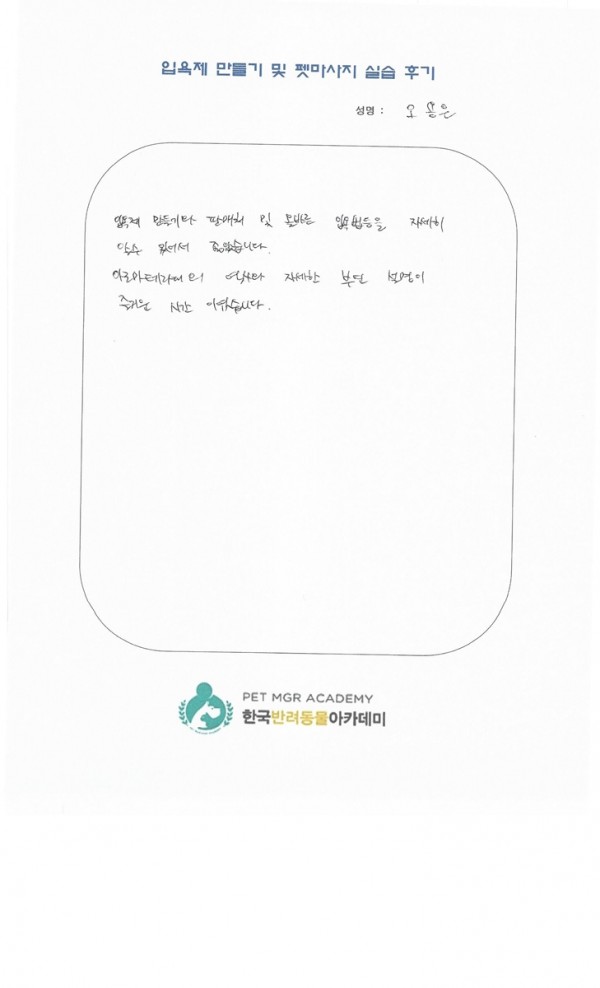 입욕제 만들기 및 펫마사지 실습 후기
성명 : 오
입욕제 만들기 및 올바른 입욕법등을 자세히
알수 있어서 좋았습니다.
아로마테라피의 역사와 자세한 설명이
즐거운 시간 이였습니다.
PET MGR ACADEMY
한국반려동물아카데미